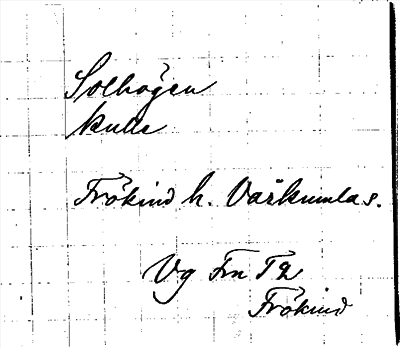 Solhögen
kulle
Frökind h. Vårkumla s.
Vg Frn T2
Frökind